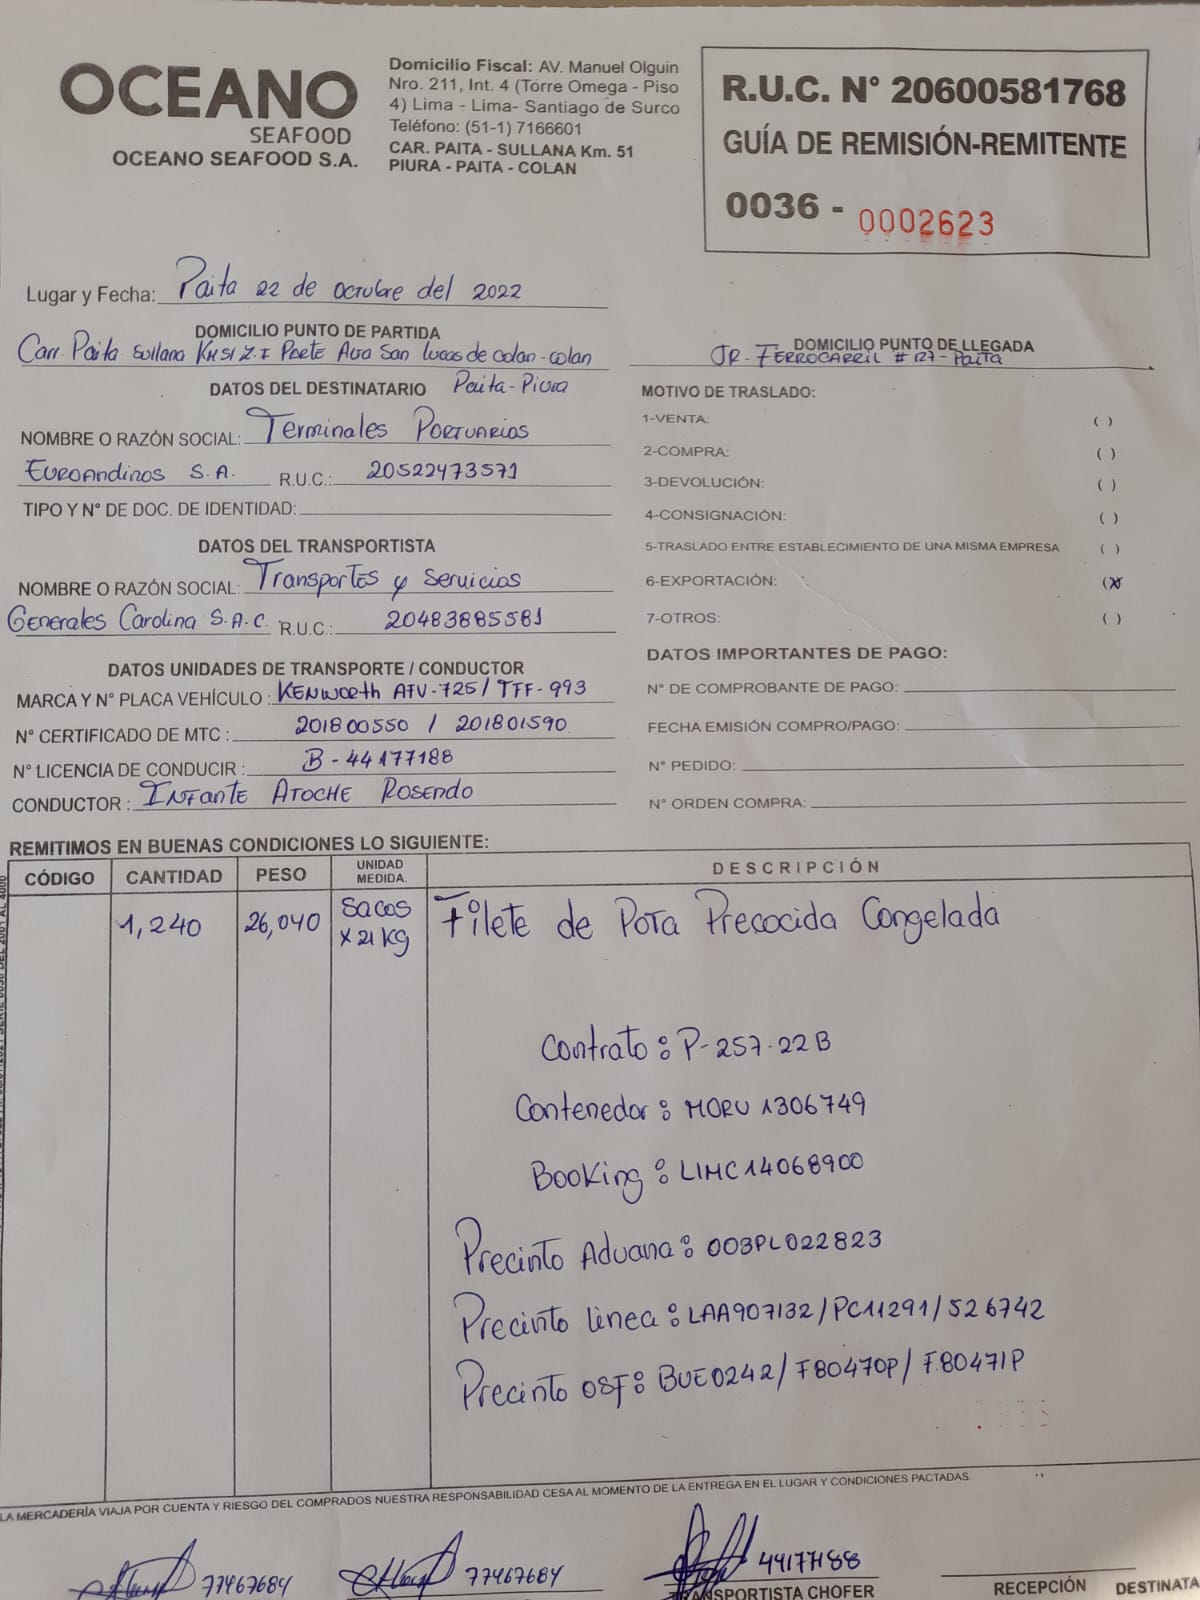 OCEANO
SEAFOOD
OCEANO SEAFOOD S.A.
Domicilio Fiscal: AV. Manuel Olguin
Nro. 211, Int. 4 (Torre Omega - Piso
4) Lima - Lima- Santiago de Surco
Teléfono: (51-1) 7166601
CAR. PAITA - SULLANA Km. 51
PIURA - PAITA - COLAN
R.U.C. N° 20600581768
GUÍA DE REMISIÓN-REMITENTE
0036 - 0002623
Lugar y Fecha: Paita 22 de octubre del 2022
DOMICILIO PUNTO DE PARTIDA
Carr. Paita Sullana Km51 Z.I Parte Alta San Lucas de Colan-colan
Paita-Piura
DOMICILIO PUNTO DE LLEGADA
Jr. Ferrocarril #127-Paita
DATOS DEL DESTINATARIO
NOMBRE O RAZÓN SOCIAL: Terminales Portuarios
Euroandinos S.A. R.U.C.: 20522473571
TIPO Y N° DE DOC. DE IDENTIDAD:
DATOS DEL TRANSPORTISTA
NOMBRE O RAZÓN SOCIAL: Transportes y Servicios
Generales Carolina S.A.C. R.U.C.: 20483885581
DATOS UNIDADES DE TRANSPORTE / CONDUCTOR
MARCA Y N° PLACA VEHÍCULO: Kenworth ATV-725/TFF-993
N° CERTIFICADO DE MTC: 201800550 / 201801590
N° LICENCIA DE CONDUCIR: B-44177188
CONDUCTOR: Infante Atoche Rosendo
MOTIVO DE TRASLADO:
1-VENTA: ( )
2-COMPRA: ( )
3-DEVOLUCIÓN: ( )
4-CONSIGNACIÓN: ( )
5-TRASLADO ENTRE ESTABLECIMIENTO DE UNA MISMA EMPRESA ( )
6-EXPORTACIÓN: (X)
7-OTROS: ( )
DATOS IMPORTANTES DE PAGO:
N° DE COMPROBANTE DE PAGO:
FECHA EMISIÓN COMPRO/PAGO:
N° PEDIDO:
N° ORDEN COMPRA:
REMITIMOS EN BUENAS CONDICIONES LO SIGUIENTE:
CÓDIGO CANTIDAD PESO UNIDAD MEDIDA. DESCRIPCIÓN
1,240 26,040 Sacos x 21 Kg Filete de Pota Precocida Congelada
Contrato: P-257-22B
Contenedor: MORU 1306749
Booking: LIMC14068900
Precinto Aduana: 003PL022823
Precinto linea: LAA907132/PC11291/526742
Precinto OSF: BUE0242/F80470P/F.80471P
LA MERCADERÍA VIAJA POR CUENTA Y RIESGO DEL COMPRADOS NUESTRA RESPONSABILIDAD CESA AL MOMENTO DE LA ENTREGA EN EL LUGAR Y CONDICIONES PACTADAS.
77467684 77467684 44177188
TRANSPORTISTA CHOFER
RECEPCIÓN DESTINATA